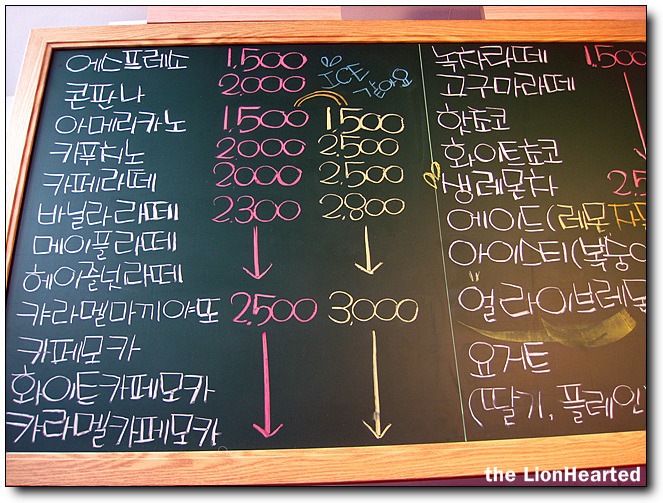 에스프레소 1,500
콘판나 2,000
ICE
아메리카노 1,500 1,500
카푸치노 2,000 2,500
카페라떼 2,000 2,500
바닐라라떼 2,300 2,800
메이플라떼
헤이즐넛라떼
캬라멜마끼야또 2,500 3,000
카페모카
화이트카페모카
캬라멜카페모카
녹차라떼 1,500
고구마라떼
핫쵸코
화이트쵸코
생레몬차
에이드(레몬
아이스티(복숭아
얼라이브레몬
요거트
(딸기, 플레인)
the LionHearted